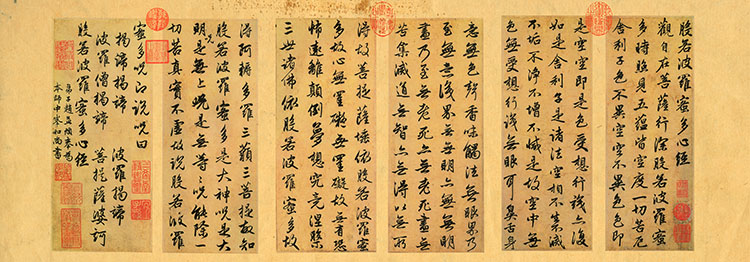 般若波羅蜜多心經
觀自在菩薩行深般若波羅蜜
多時照見五蘊皆空度一切苦厄
舍利子色不異空空不異色色即
是空空即是色受想行識亦復
如是舍利子是諸法空相不生不滅
不垢不淨不增不減是故空中無
色無受想行識無眼耳鼻舌身
意無色聲香味觸法無眼界乃
至無意識界無無明亦無無明
盡乃至無老死亦無老死盡無
苦集滅道無智亦無得以無所
得故菩提薩埵依般若波羅蜜
多故心無罣礙無罣礙故無有恐
怖遠離顛倒夢想究竟涅槃
三世諸佛依般若波羅蜜多故
得阿耨多羅三藐三菩提故知
般若波羅蜜多是大神咒是大
明咒是無上咒是無等等咒能除一
切苦真實不虛故說般若波羅
蜜多咒即說咒曰
揭諦揭諦 波羅揭諦
波羅僧揭諦 菩提薩婆訶
般若波羅蜜多心經
弟子趙孟頫奉為
本師中峯和尚書